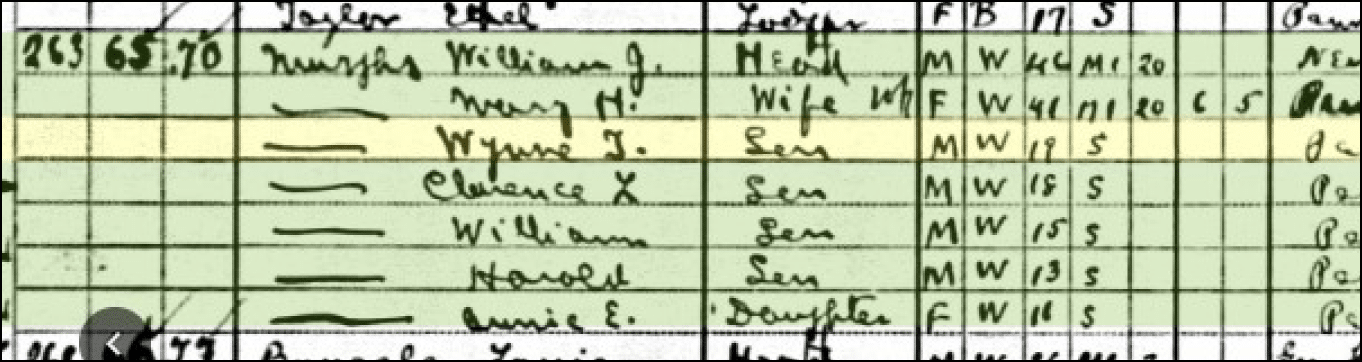 Taylor Ethel Lodger F B 17 S
263 65 70 Murphy William J. Head M W 46 M1 20
Mary H. Wife F W 41 M1 20 6 5
Wynne T. Son M W 19 S Pa
Clarence L Son M W 18 S Pa
William Son M W 15 S Pa
Harold Son M W 13 S Pa
Annie E. Daughter F W 11 S Pa
77